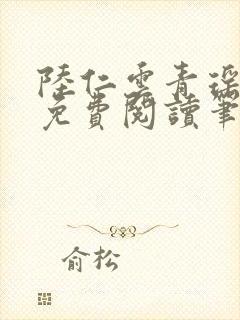 陸仁雲青瑤
免費閱讀筆
俞松